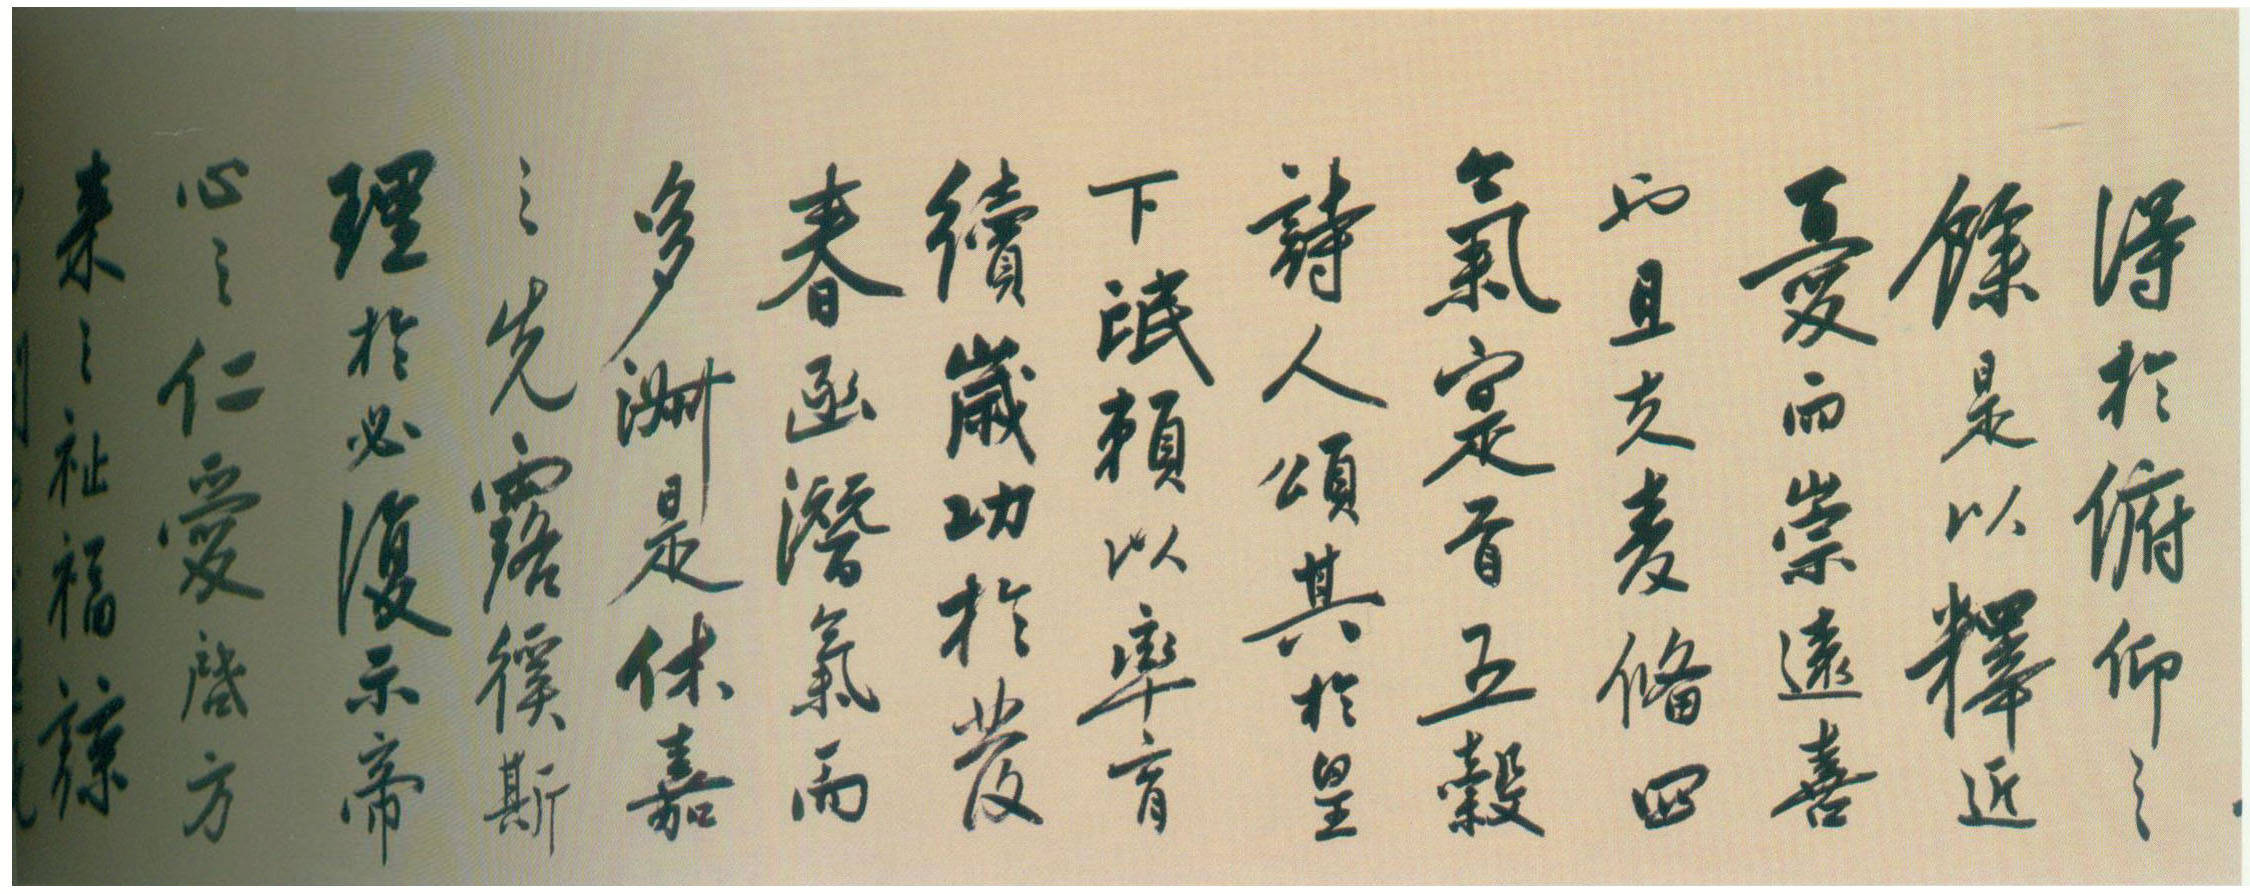 得於俯仰之
餘是以釋近
憂而崇遠喜
也且夫麦偹四
氣寔首五穀
詩人頌其於皇
下氓賴以率育
續歲功於發
春函潛氣而
多
是休嘉
之先露徯斯
理於必復示帝
心之仁愛啓方
来之祉福諒